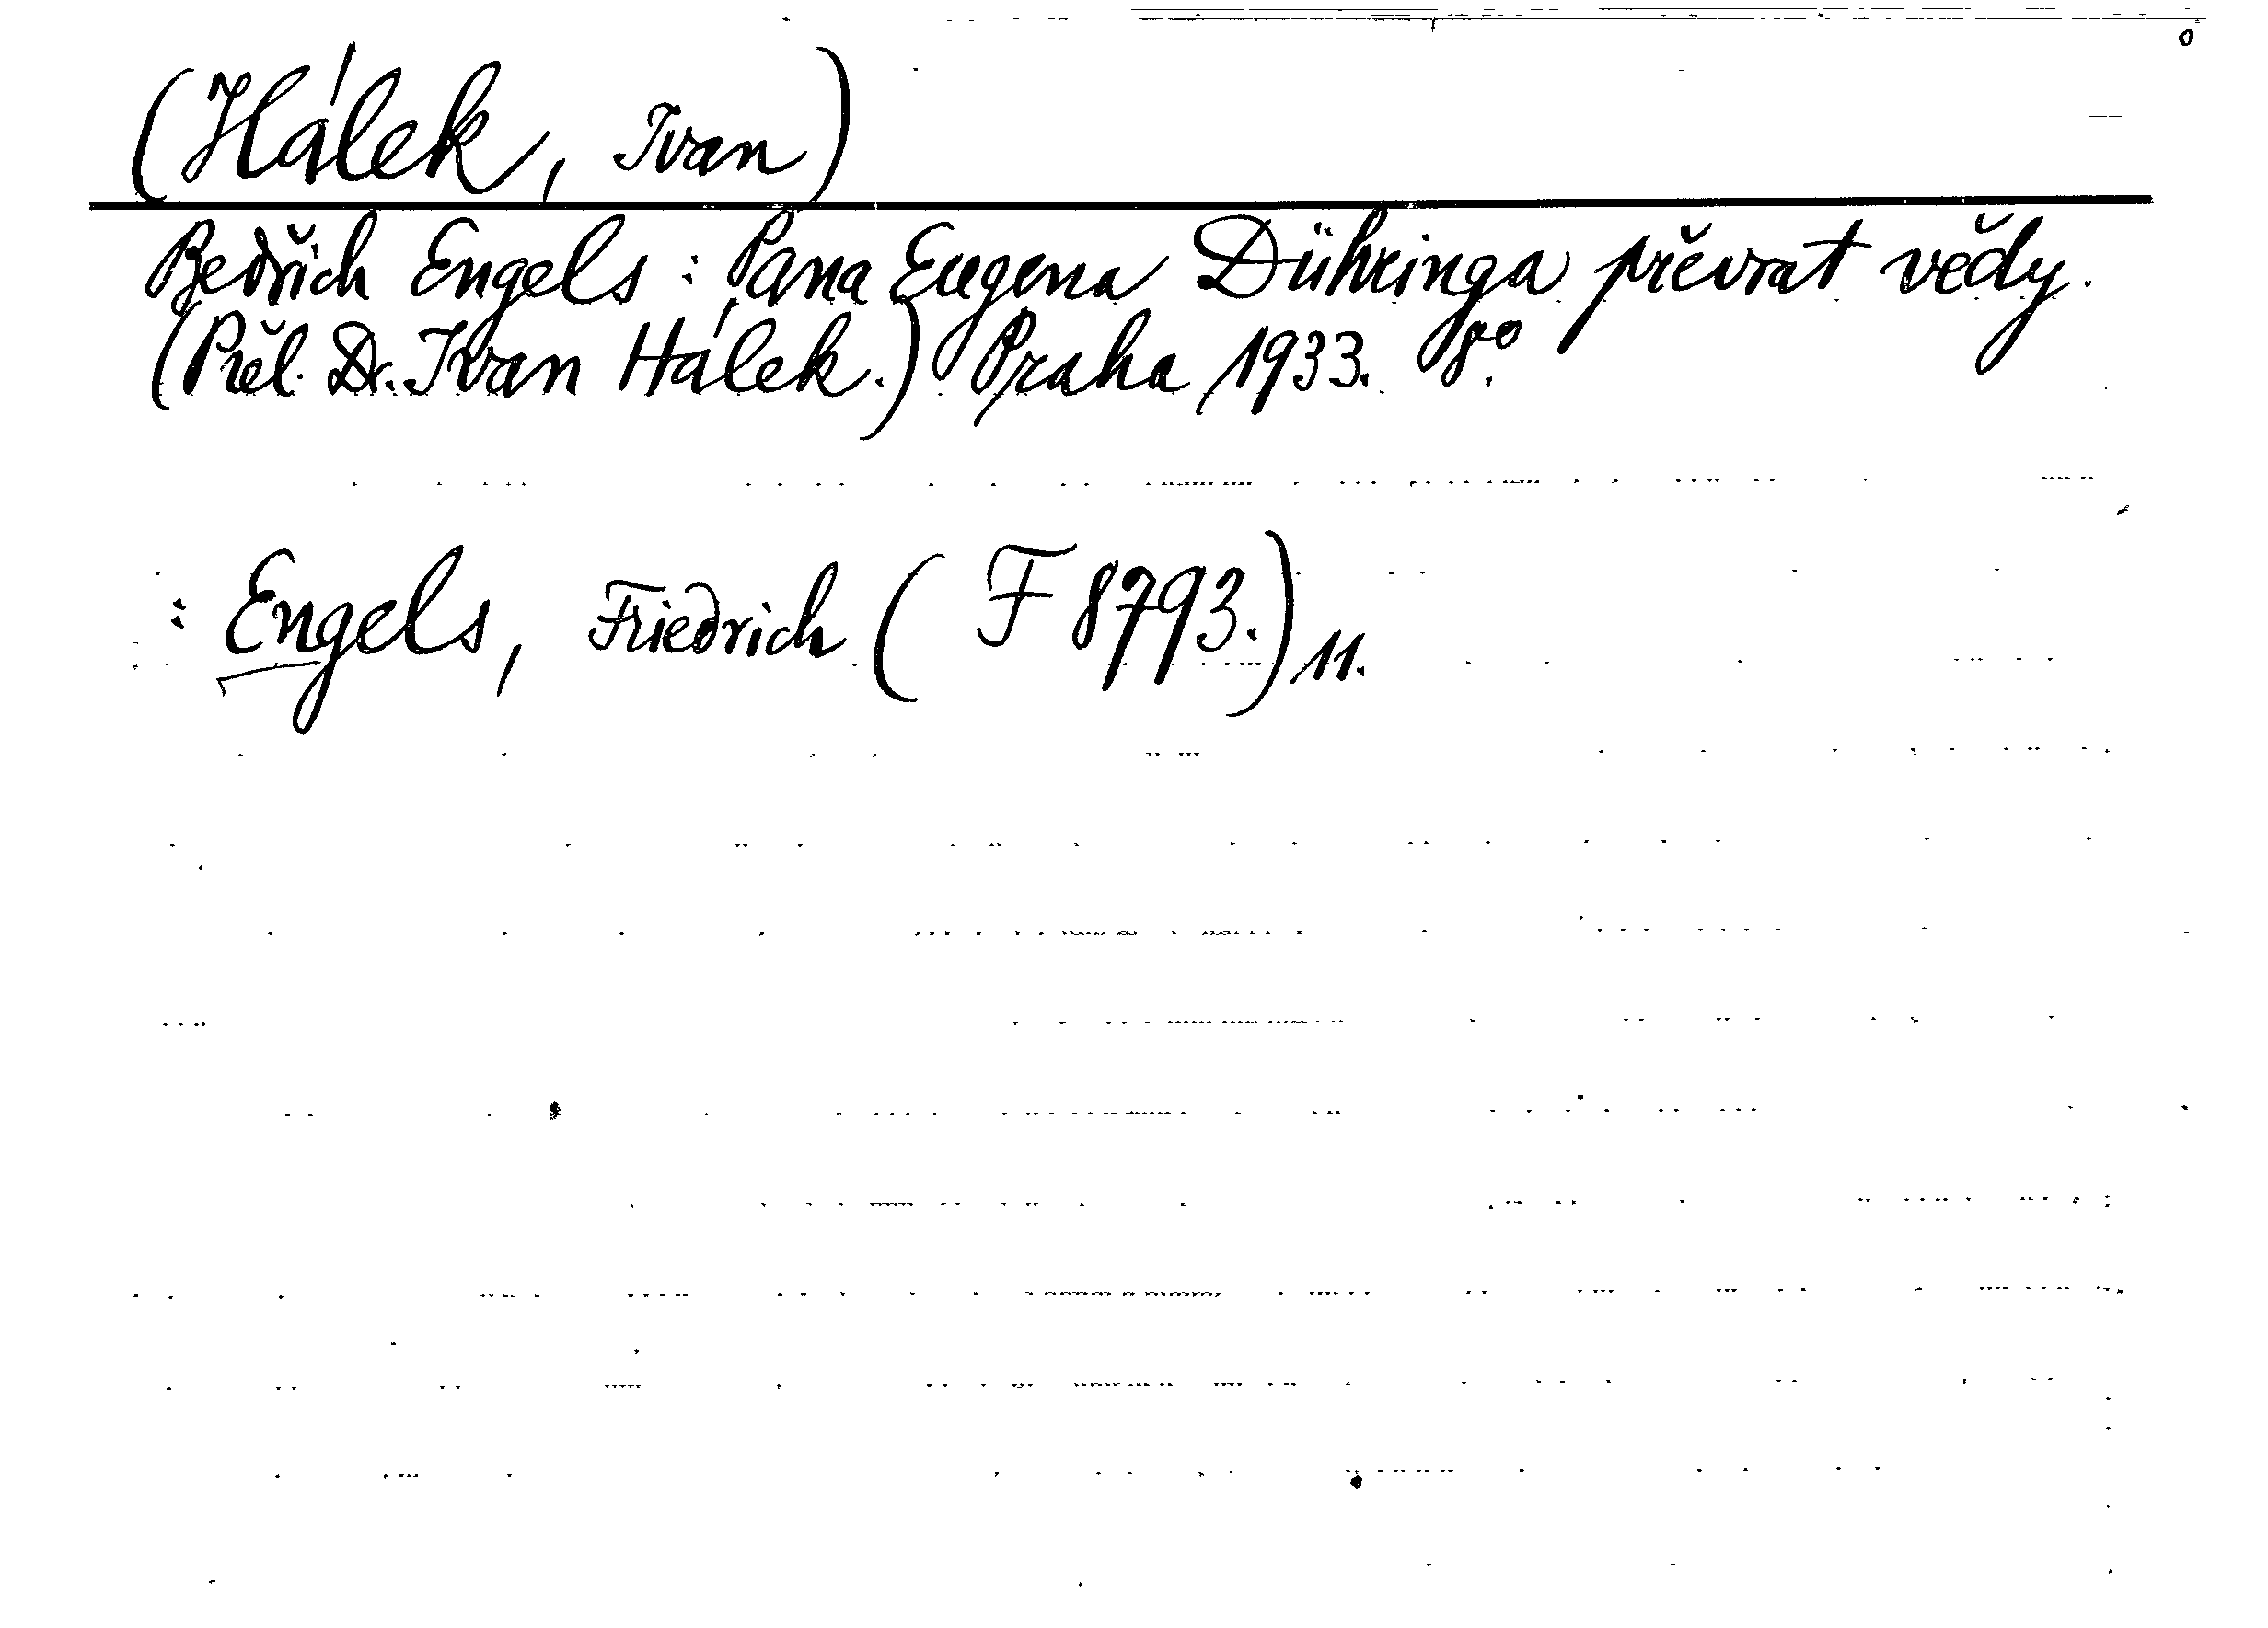 (Hálek, Ivan)
Bedřich Engels: Pana Eugena Dühringa převrat vědy.
(Přel. Dr. Ivan Hálek.) Praha 1933. 8°.
: Engels, Friedrich (F 8793.) 11.